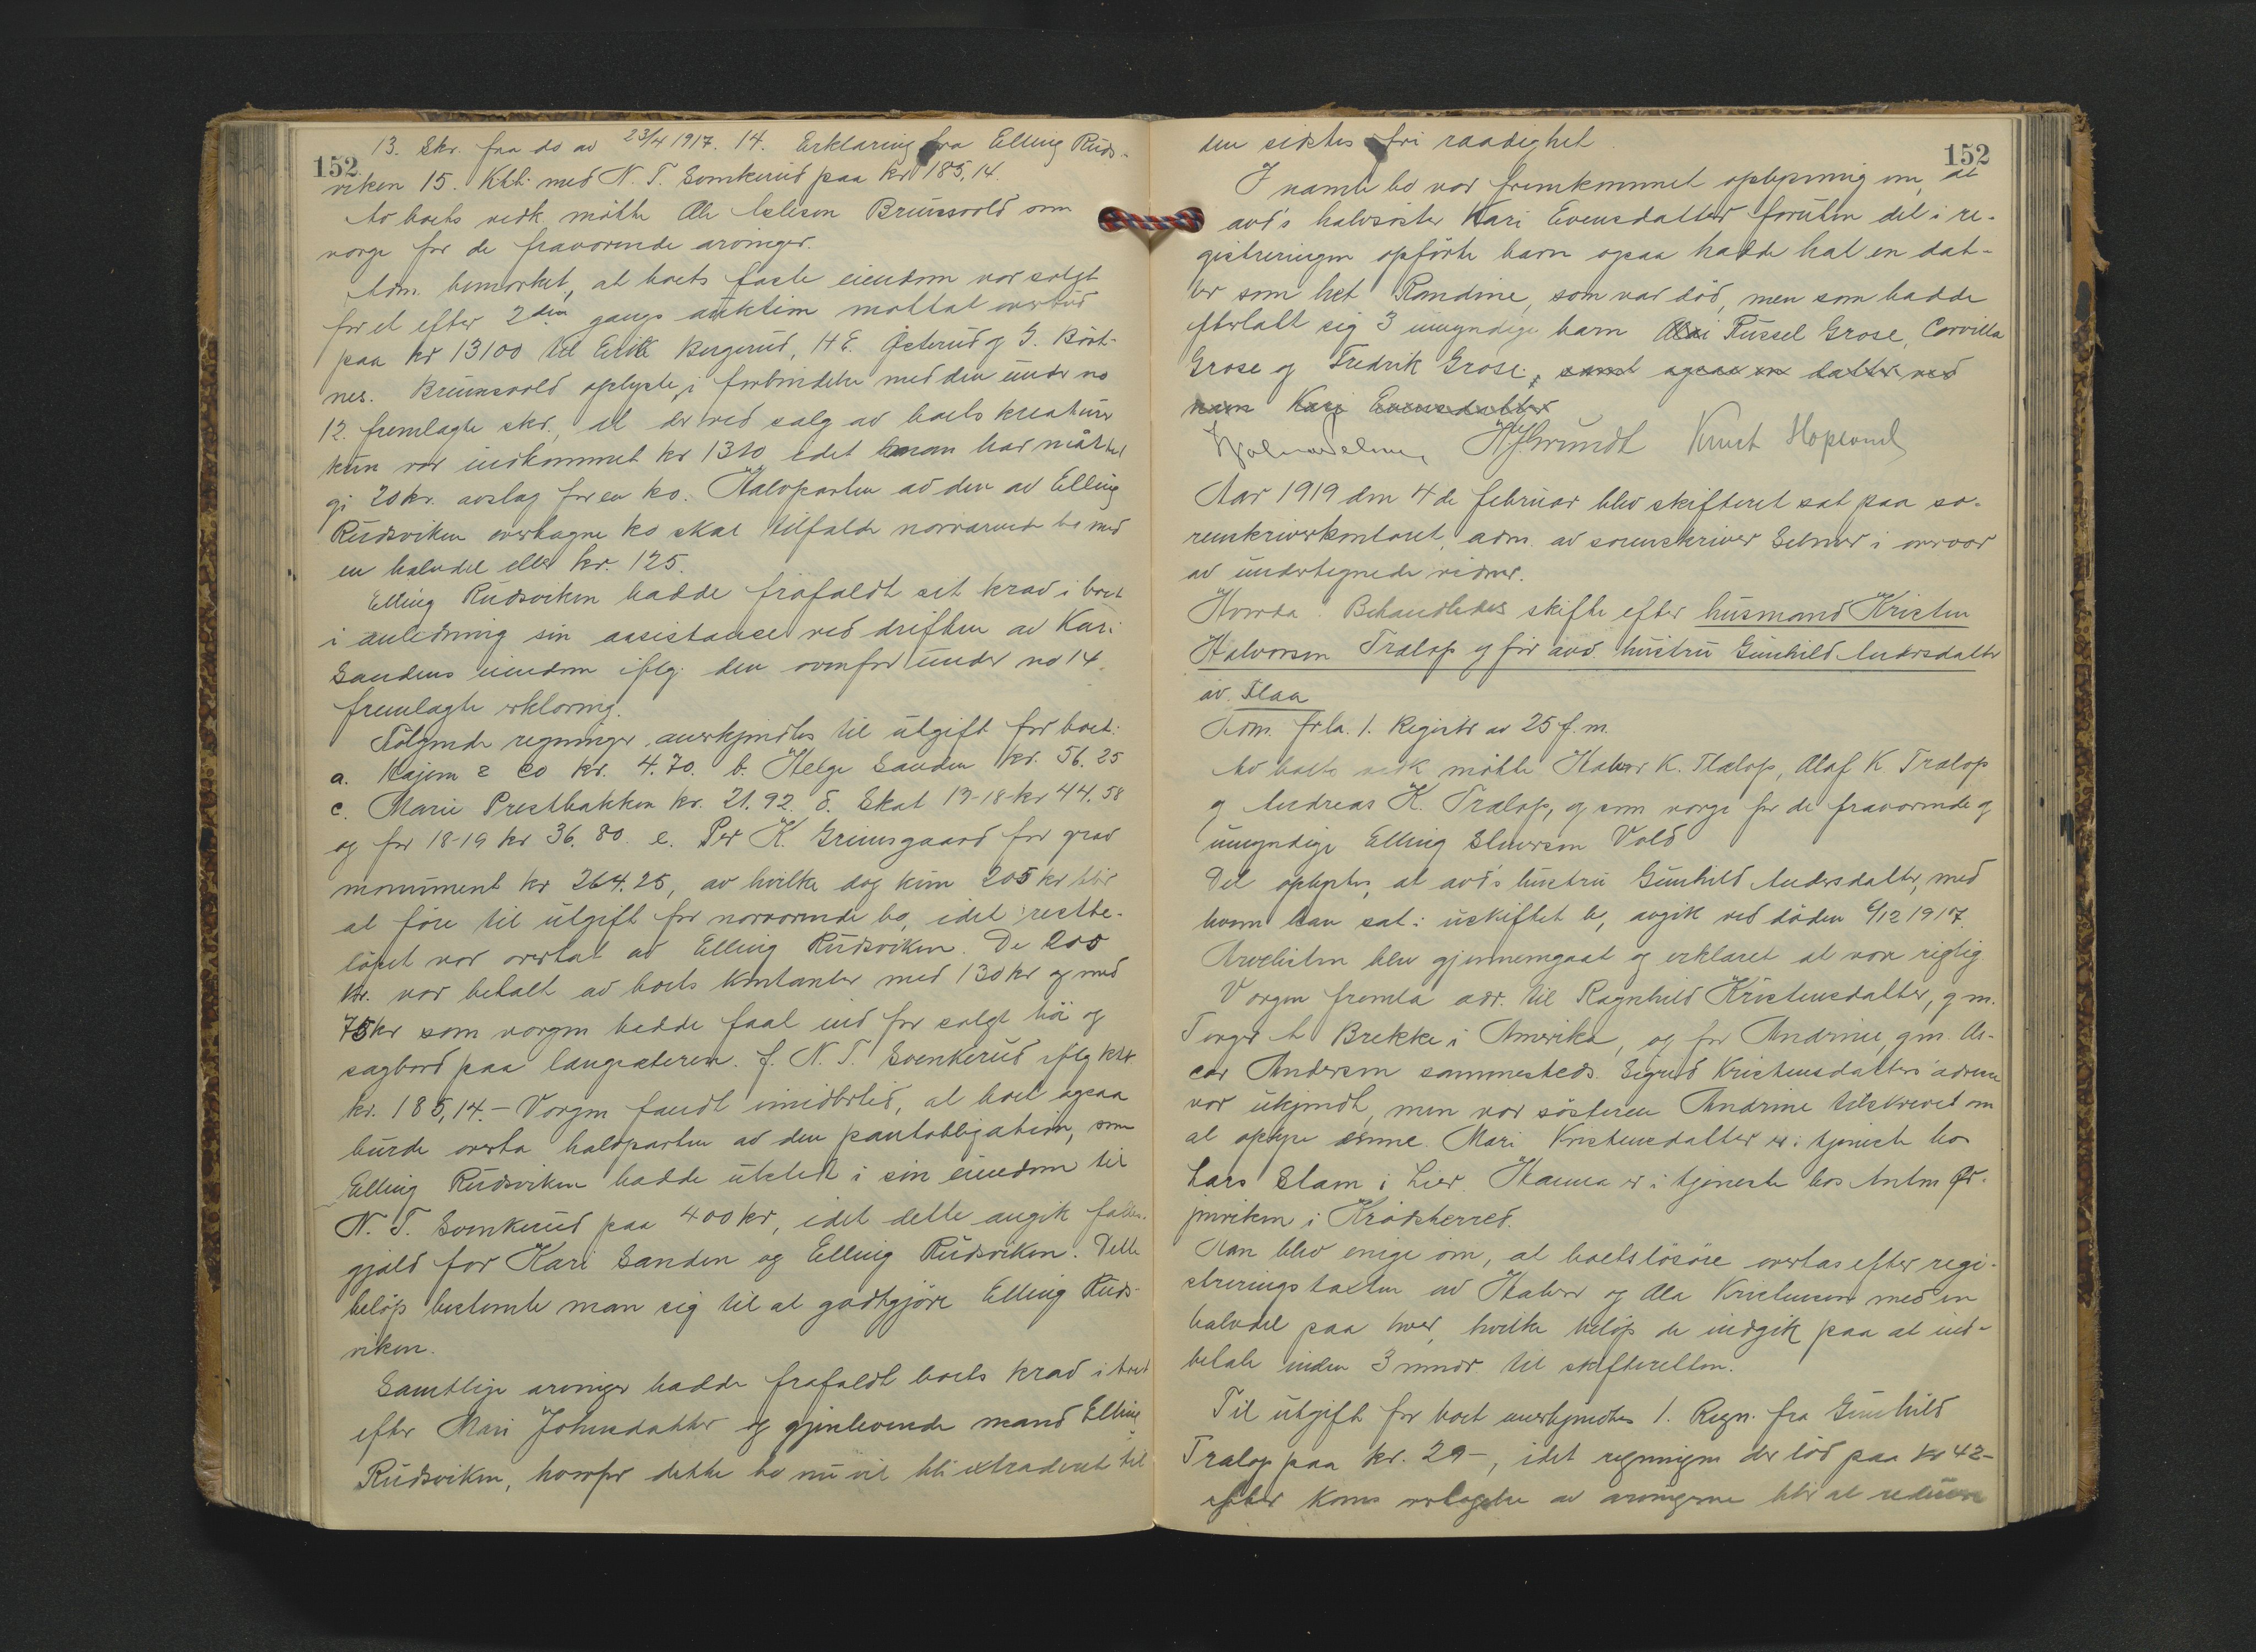 13. Skr. fra do av 23/4 1917. 14. Erklæring fra Elling Ruds-
152
viken 15. Kht: med N. T. Svenkerud paa kr 185,14.
Av boets vedk. mötte Ole Brunsvold som
verge for de fraværende arvinger.
Adm. bemerket, at boets faste eiendom var solgt
for et efter 2den gangs auktion mottat overbud
paa kr 13100 til Erik Bergerud, H E. Østerud og G. Bört-
nes. Brunsvold oplyste, i forbindelse med den under no
12. fremlagte skr., at der ved salg av boets kreaturer
kun var indkommet kr 1310 idet man har måttet
gi 20 kr. avslag for en ko. Halvparten av den av Elling
Rudsviken overtagne ko skal tilfalde nærværende bo med
en halvdel eller kr. 125.
Elling Rudsviken hadde frafaldt sit krav i boet
i anledning sin assistance ved driften av Kari
Sandens eiendom iflg. den ovenfor under no 14
fremlagte erklæring.
Følgende regninger anerkjendtes til utgift for boet:
a. Kajem & Co kr. 4.70. b. Helge Sanden kr. 56.25
c. Marie Prestbakken kr. 21.92. d. Skat 17-18-kr 44.58
og for 18-19 kr 36.80. e. Per K. Grimsgaard for grav
monument kr 264.25, av hvilke dog kun 205 kr blir
at føre til utgift for nærværende bo, idet restbe-
löpet var overtat av Elling Rudsviken. De 205
kr. var betalt av boets kontanter med 130 kr og med
75 kr som vergen hadde faat ind for solgt hö og
sagbord paa langsæteren. f. N. T. Svenkerud iflg kht
kr. 185,14.- Vergen fandt imidlertid, at boet ogsaa
burde overta halvparten av den pantobligation, som
Elling Rudsviken hadde utstedt i sin eiendom til
N. T. Svenkerud paa 400 kr, idet dette angik fælles-
gjæld for Kari Sanden og Elling Rudsviken. Dette
beløp bestemte man sig til at godtgjøre Elling Ruds-
viken.
Samtlige arvinger hadde frafaldt boets krav i boet
efter Mari Johnsdatter og gjenlevende mand Elling
Rudsviken, hvorfor dette bo nu vil bli extraderet til
den sidstes fri raadighet.
152
I nævnte bo var fremkommet oplysning om, at
avd's halvsöster Kari Evensdatter foruten de i re-
gistreringen opførte barn ogsaa hadde hat en dat-
ter som het Randine, som var død, men som hadde
efterlatt sig 3 umyndige barn Fussel Grose, Corvilla
Grose og Fredrik Grose, samt ogsaa en datter ved
navn Kari Evensdatter
Knut Hoplund
Aar 1919 den 4de februar blev skifteret sat paa so-
renskriverkontoret, adm. av sorenskriver Selmer i overvær
av undertegnede vidner.
Hvorda: Behandledes skifte efter husmand Kristen
Halvorsen Trælop og før avd hustru Gunhild Andersdatter
av Flaa
Adm. frla. 1. Registr av 25 f. m.
Av boets vedk mötte Halvor K. Trælop, Olaf K Trælop
og Andreas K. Trælop, og som verge for de fraværende og
umyndige Elling Sluerson Vold
Det oplystes, at avd's hustru Gunhild Andersdatter, med
hvem han sat i uskiftet bo, avgik ved döden 6/12 1917.
Arvelisten blev gjennemgaat og erklæret at være rigtig
Vergen fremla adr. til Ragnhild Kristensdatter, g m.
Torger A Brekke i Amerika, og for Andrine, gm. Os-
car Anderson sammesteds. Sigrid Kristensdatters adresse
var ukjendt, men var søsteren Andrine tilskrevet om
at opgi samme. Mari Kristensdatter er i tjeneste hos
Lars Slam i Lier. Hanna er i tjeneste hos Anton Ør-
i Krödsherred.
Man blev enige om, at boets løsöre overtas efter regi-
streringstaxten av Halvor og Ola Kristensen med en
halvdel paa hver, hvilke beløp de indgik paa at ind-
betale inden 3 mndr til skifteretten.
Til utgift for boet anerkjendtes 1. Regn. fra Gunhild
Trælop paa kr. 29-, idet regningen der lød paa kr 42-
efter overtagelse av arvingerne blir at reducere